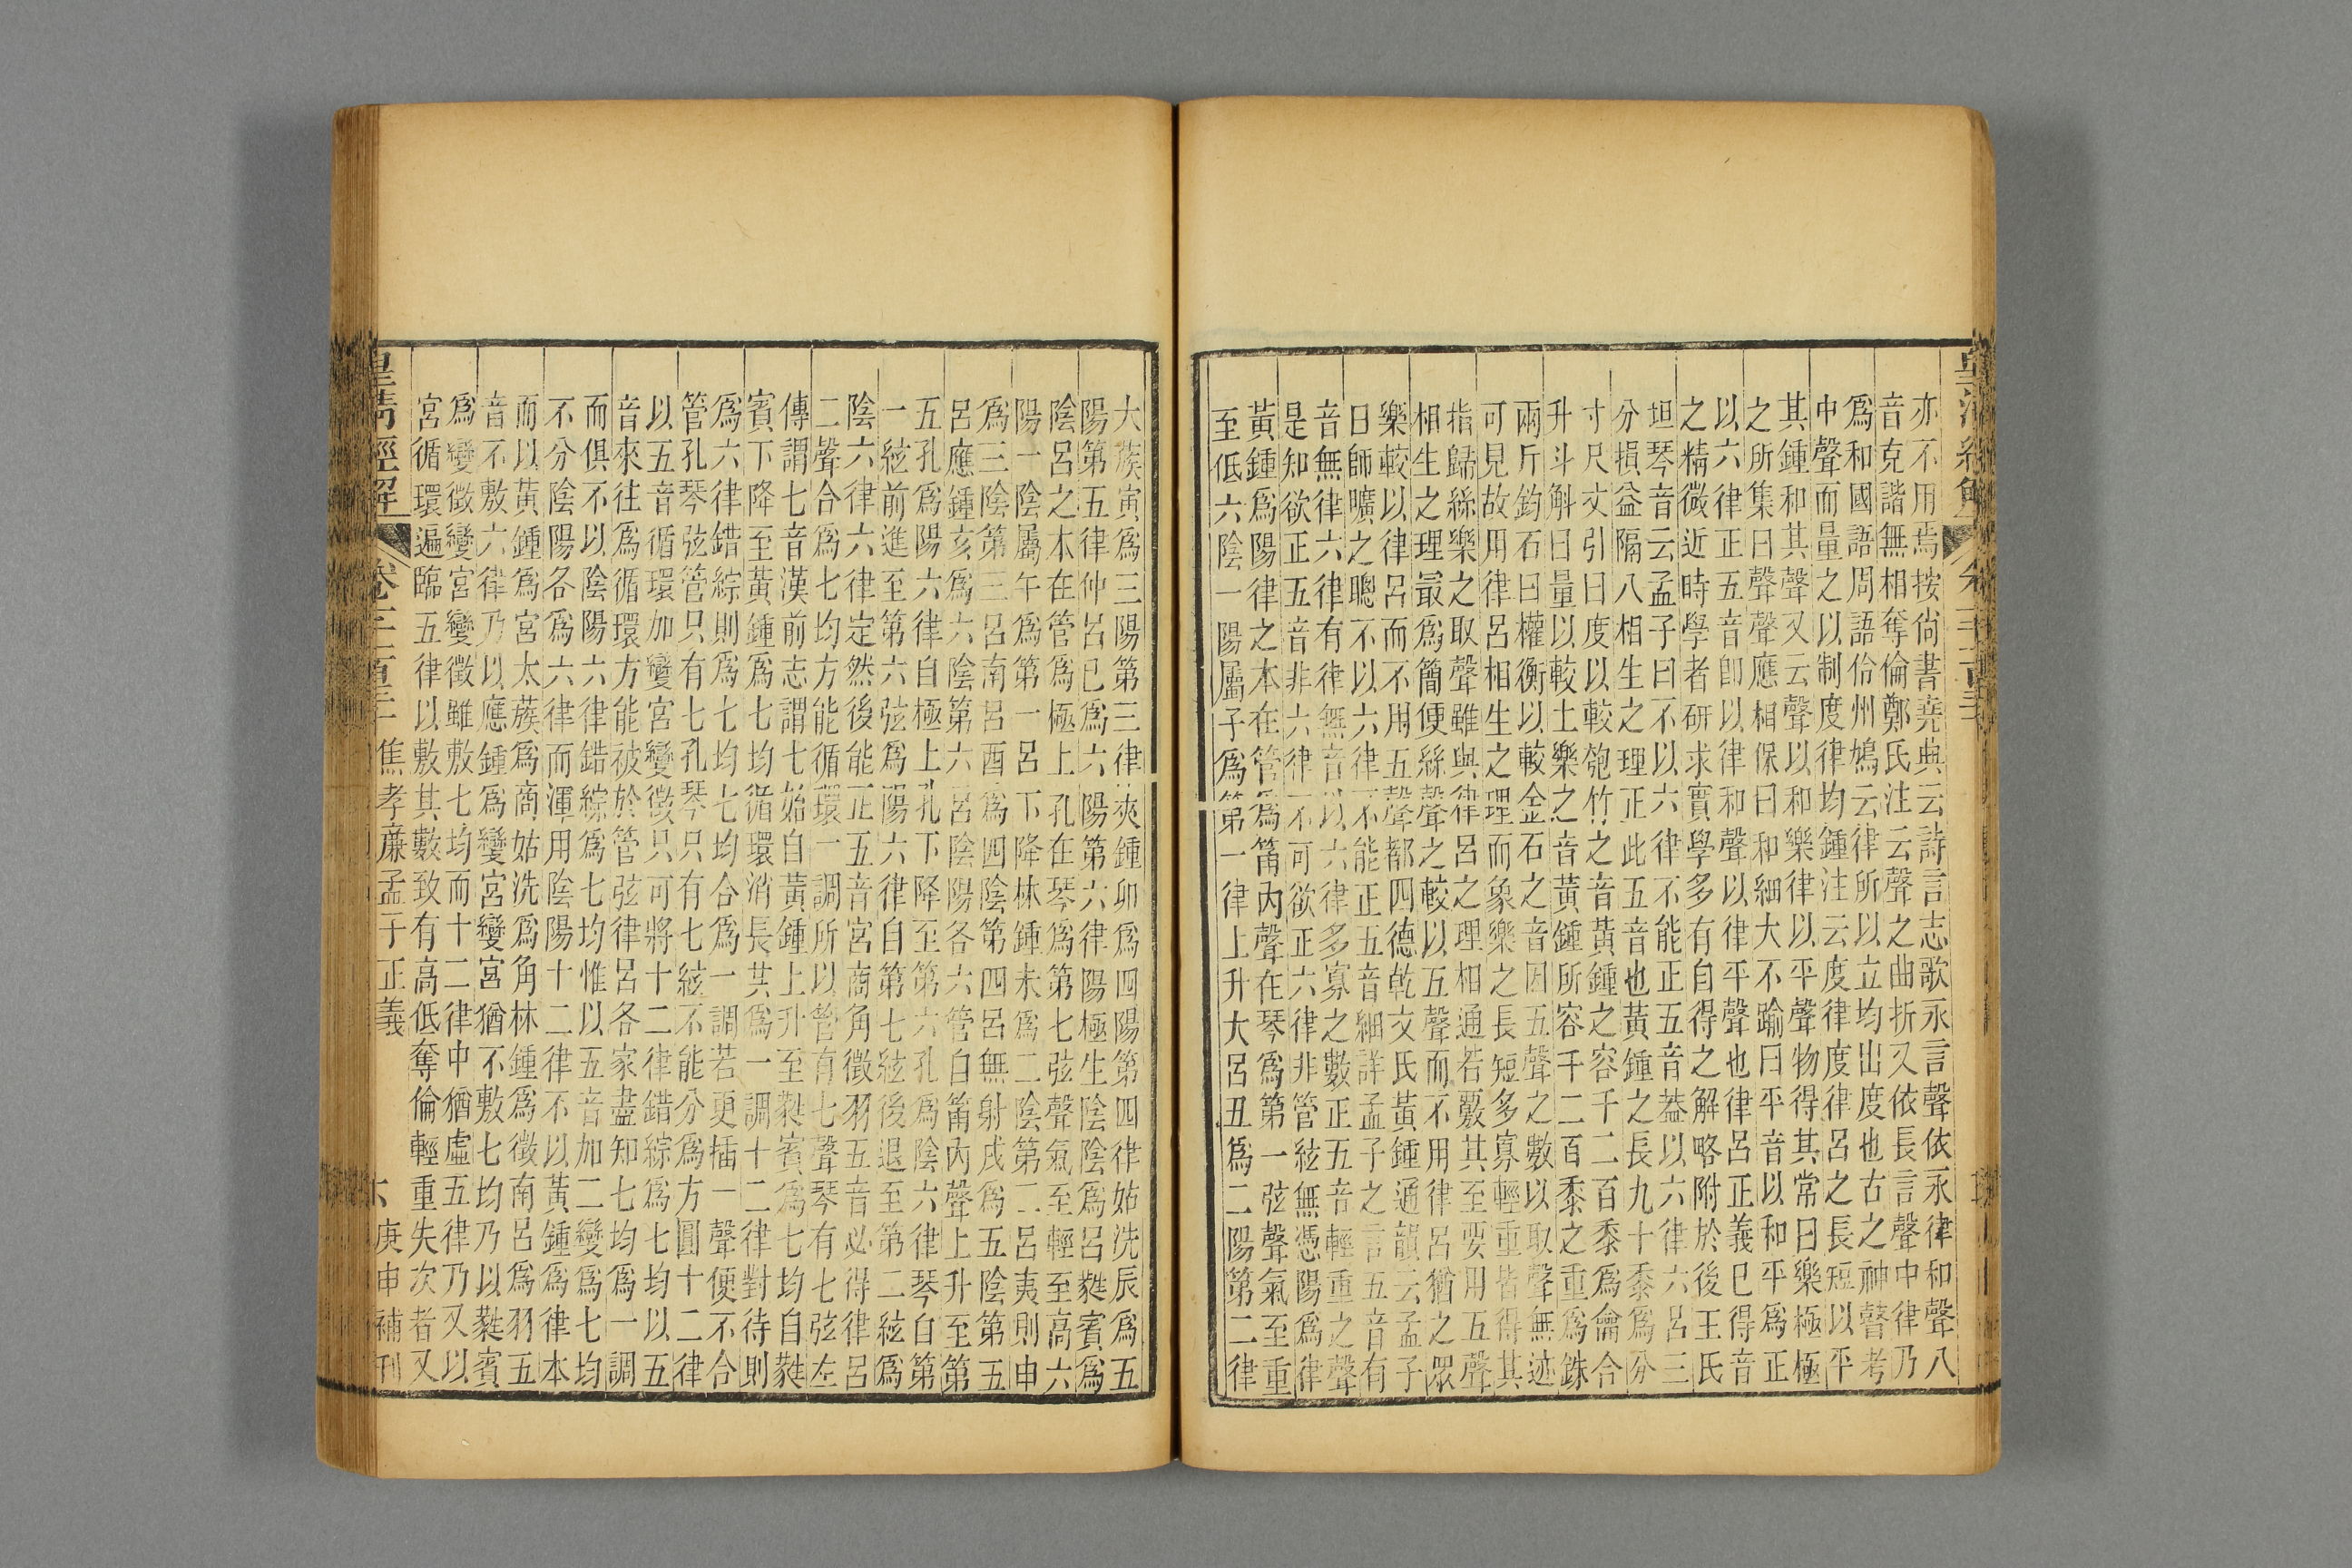 亦不用焉按尚書堯典云詩言志歌永言聲依永律和聲八
音克諧無相奪倫鄭氏注云聲之曲折又依長言聲中律乃
爲和國語周語伶州鳩云律所以立均出度也古之神瞽考
中聲而量之以制度律均鍾注云度律度律呂之長短以平
其鍾和其聲又云聲以和樂律以平聲物得其常曰樂極極
之所集曰聲聲應相保曰和細大不踰曰平音以和平爲正
以六律正五音卽以律和聲以律平聲也律呂正義已得音
之精微近時學者研求實學多有自得之解略附於後王氏
坦琴音云孟子曰不以六律不能正五音葢以六律六呂三
分損益隔八相生之理正此五音也黃鍾之長九十黍爲分
寸尺丈引曰度以較匏竹之音黃鍾之容千二百黍爲龠合
升斗斛曰量以較土樂之音黃鍾所容千二百黍之重爲銖
兩斤鈞石曰權衡以較金石之音因五聲之數以取聲無迹
可見故用律呂相生之理而象樂之長短多寡輕重皆得其
指歸絲樂之取聲雖與律呂之理相通若覈其至要用五聲
相生之理最爲簡便絲聲之較以五聲而不用律呂猶之眾
樂較以律呂而不用五聲都四德乾文氏黃鍾通韻云孟子
曰師曠之聰不以六律不能正五音細詳孟子之言五音有
音無律六律有律無音以六律多寡之數正五音輕重之聲
是知欲正五音非六律不可欲正六律非管絃無憑陽爲律
黃鍾爲陽律之本在管爲笛內聲在琴爲第一弦聲氣至重
至低六陰一陽屬子爲第一律上升大呂丑爲二陽第二律
大蔟寅爲三陽第三律夾鍾卯爲四陽第四律姑洗辰爲五
陽第五律仲呂巳爲六陽第六律陽極生陰陰爲呂蕤賓爲
陰呂之本在管爲極上孔在琴爲第七弦聲氣至輕至高六
陽一陰屬午爲第一呂下降林鍾未爲二陰第二呂夷則申
爲三陰第三呂南呂酉爲四陰第四呂無射戌爲五陰第五
呂應鍾亥爲六陰第六呂陰陽各六管自笛內聲上升至第
五孔爲陽六律自極上孔下降至第六孔爲陰六律琴自第
一絃前進至第六弦爲陽六律自第七絃後退至第二絃爲
陰六律六律定然後能正五音宮商角徵羽五音必得律呂
二聲合爲七均方能循環一調所以管有七聲琴有七弦左
傳謂七音漢前志謂七始自黃鍾上升至蕤賓爲七均自蕤
賓下降至黃鍾爲七均循環消長共爲一調十二律對待則
爲六律錯綜則爲七均七均合爲一調若更插一聲便不合
管孔琴弦管只有七孔琴只有七絃不能分爲方圓十二律
以五音循環加變宮變徵只可將十二律錯綜爲七均以五
音來往爲循環方能被於管弦律呂各家盡知七均爲一調
而俱不以陰陽六律錯綜爲七均惟以五音加二變爲七均
不分陰陽各爲六律而渾用陰陽十二律不以黃鍾爲律本
而以黃鍾爲宮太蔟爲商姑洗爲角林鍾爲徵南呂爲羽五
音不敷六律乃以應鍾爲變宮變宮猶不敷七均乃以蕤賓
爲變徵變宮變徵雖敷七均而十二律中猶虛五律乃又以
宮循環遍臨五律以敷其數致有高低奪倫輕重失次者又
皇清經解 焦孝廉孟子正義 庚申補刊